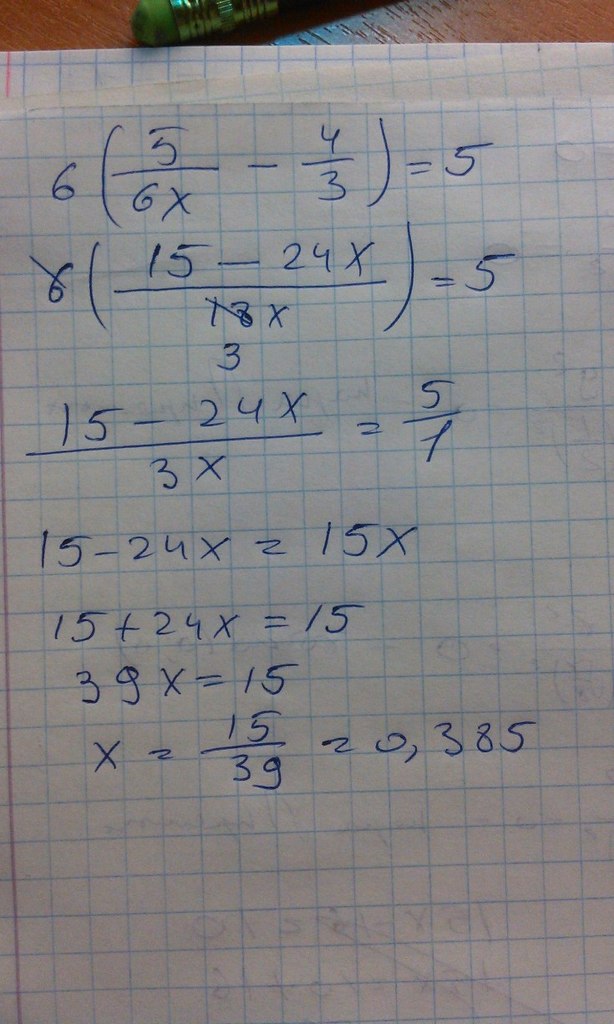 6(5/6x - 4/3) = 5
6((15 - 24x)/18x) = 5
3
(15 - 24x)/3x = 5/1
15 - 24x = 15x
15 + 24x = 15
39x = 15
x = 15/39 = 0,385